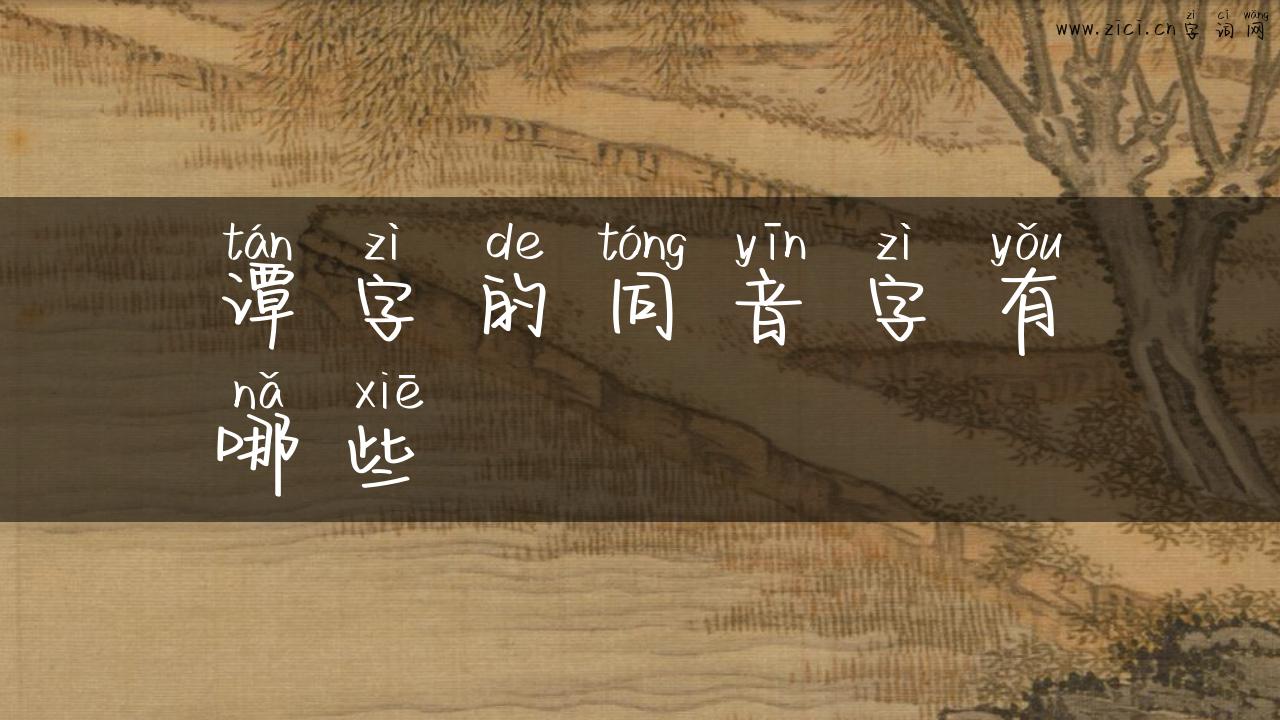 www.zici.cn字词网
zì cí wǎng
tán zì de tóng yīn zì yǒu
谭字的同音字有
nǎ xiē
哪些